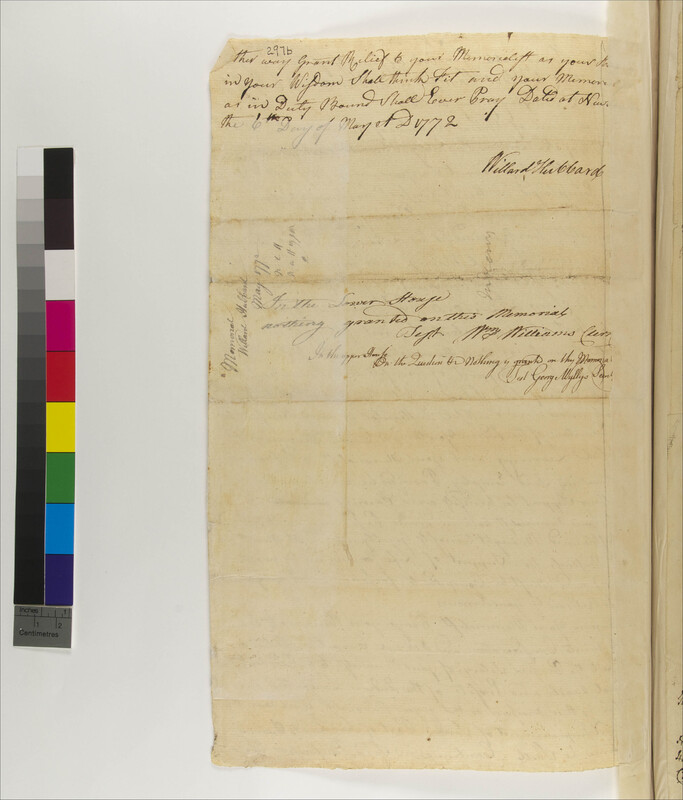 297b
ther way Grant Relief to your Memorialist as your
in your Wisdom Shall think Fit and your Memori
as in Duty Bound Shall Ever Pray Dated at New
the 6th Day of May AD 1772
Willard Hubbard
Memorial
Willard Hubbard
May 1772
In the Lower House
nothing granted on this Memorial
Test Wm Williams Clerk
In the upper House
On the Question &c Nothing is granted on this Memorial
Test George Wyllys
Inches
1
Centimetres
1
2